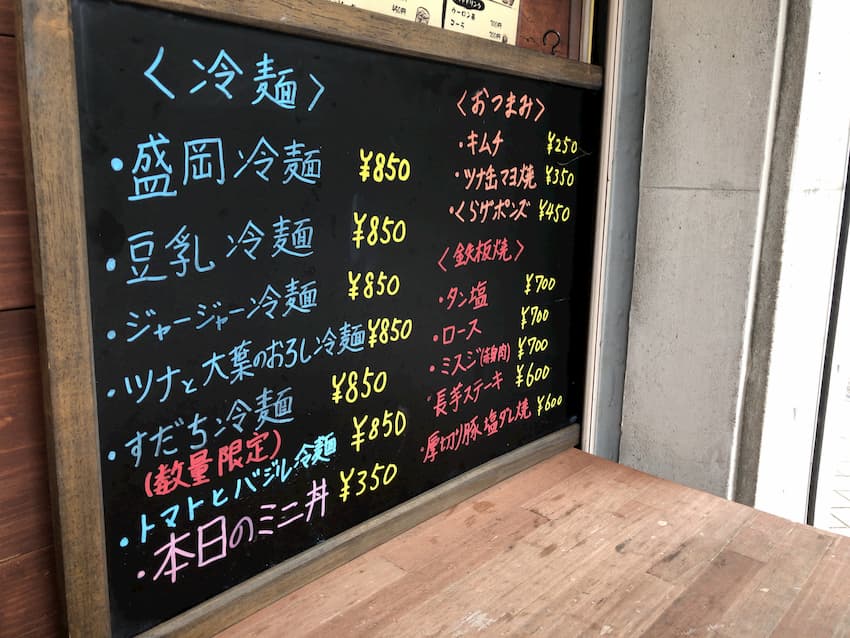 〈冷麺〉
・盛岡冷麺 ¥850
・豆乳冷麺 ¥850
・ジャージャー冷麺 ¥850
・ツナと大葉のおろし冷麺 ¥850
・すだち冷麺 ¥850
(数量限定)
・トマトとバジル冷麺 ¥850
・本日のミニ丼 ¥350
〈おつまみ〉
・キムチ ¥250
・ツナ缶マヨ焼 ¥350
・くらげポンズ ¥450
〈鉄板焼〉
・タン塩 ¥700
・ロース ¥700
・ミスジ ¥700
・長芋ステーキ ¥600
・厚切り豚塩ダレ焼 ¥600
ウーロン茶
コーラ